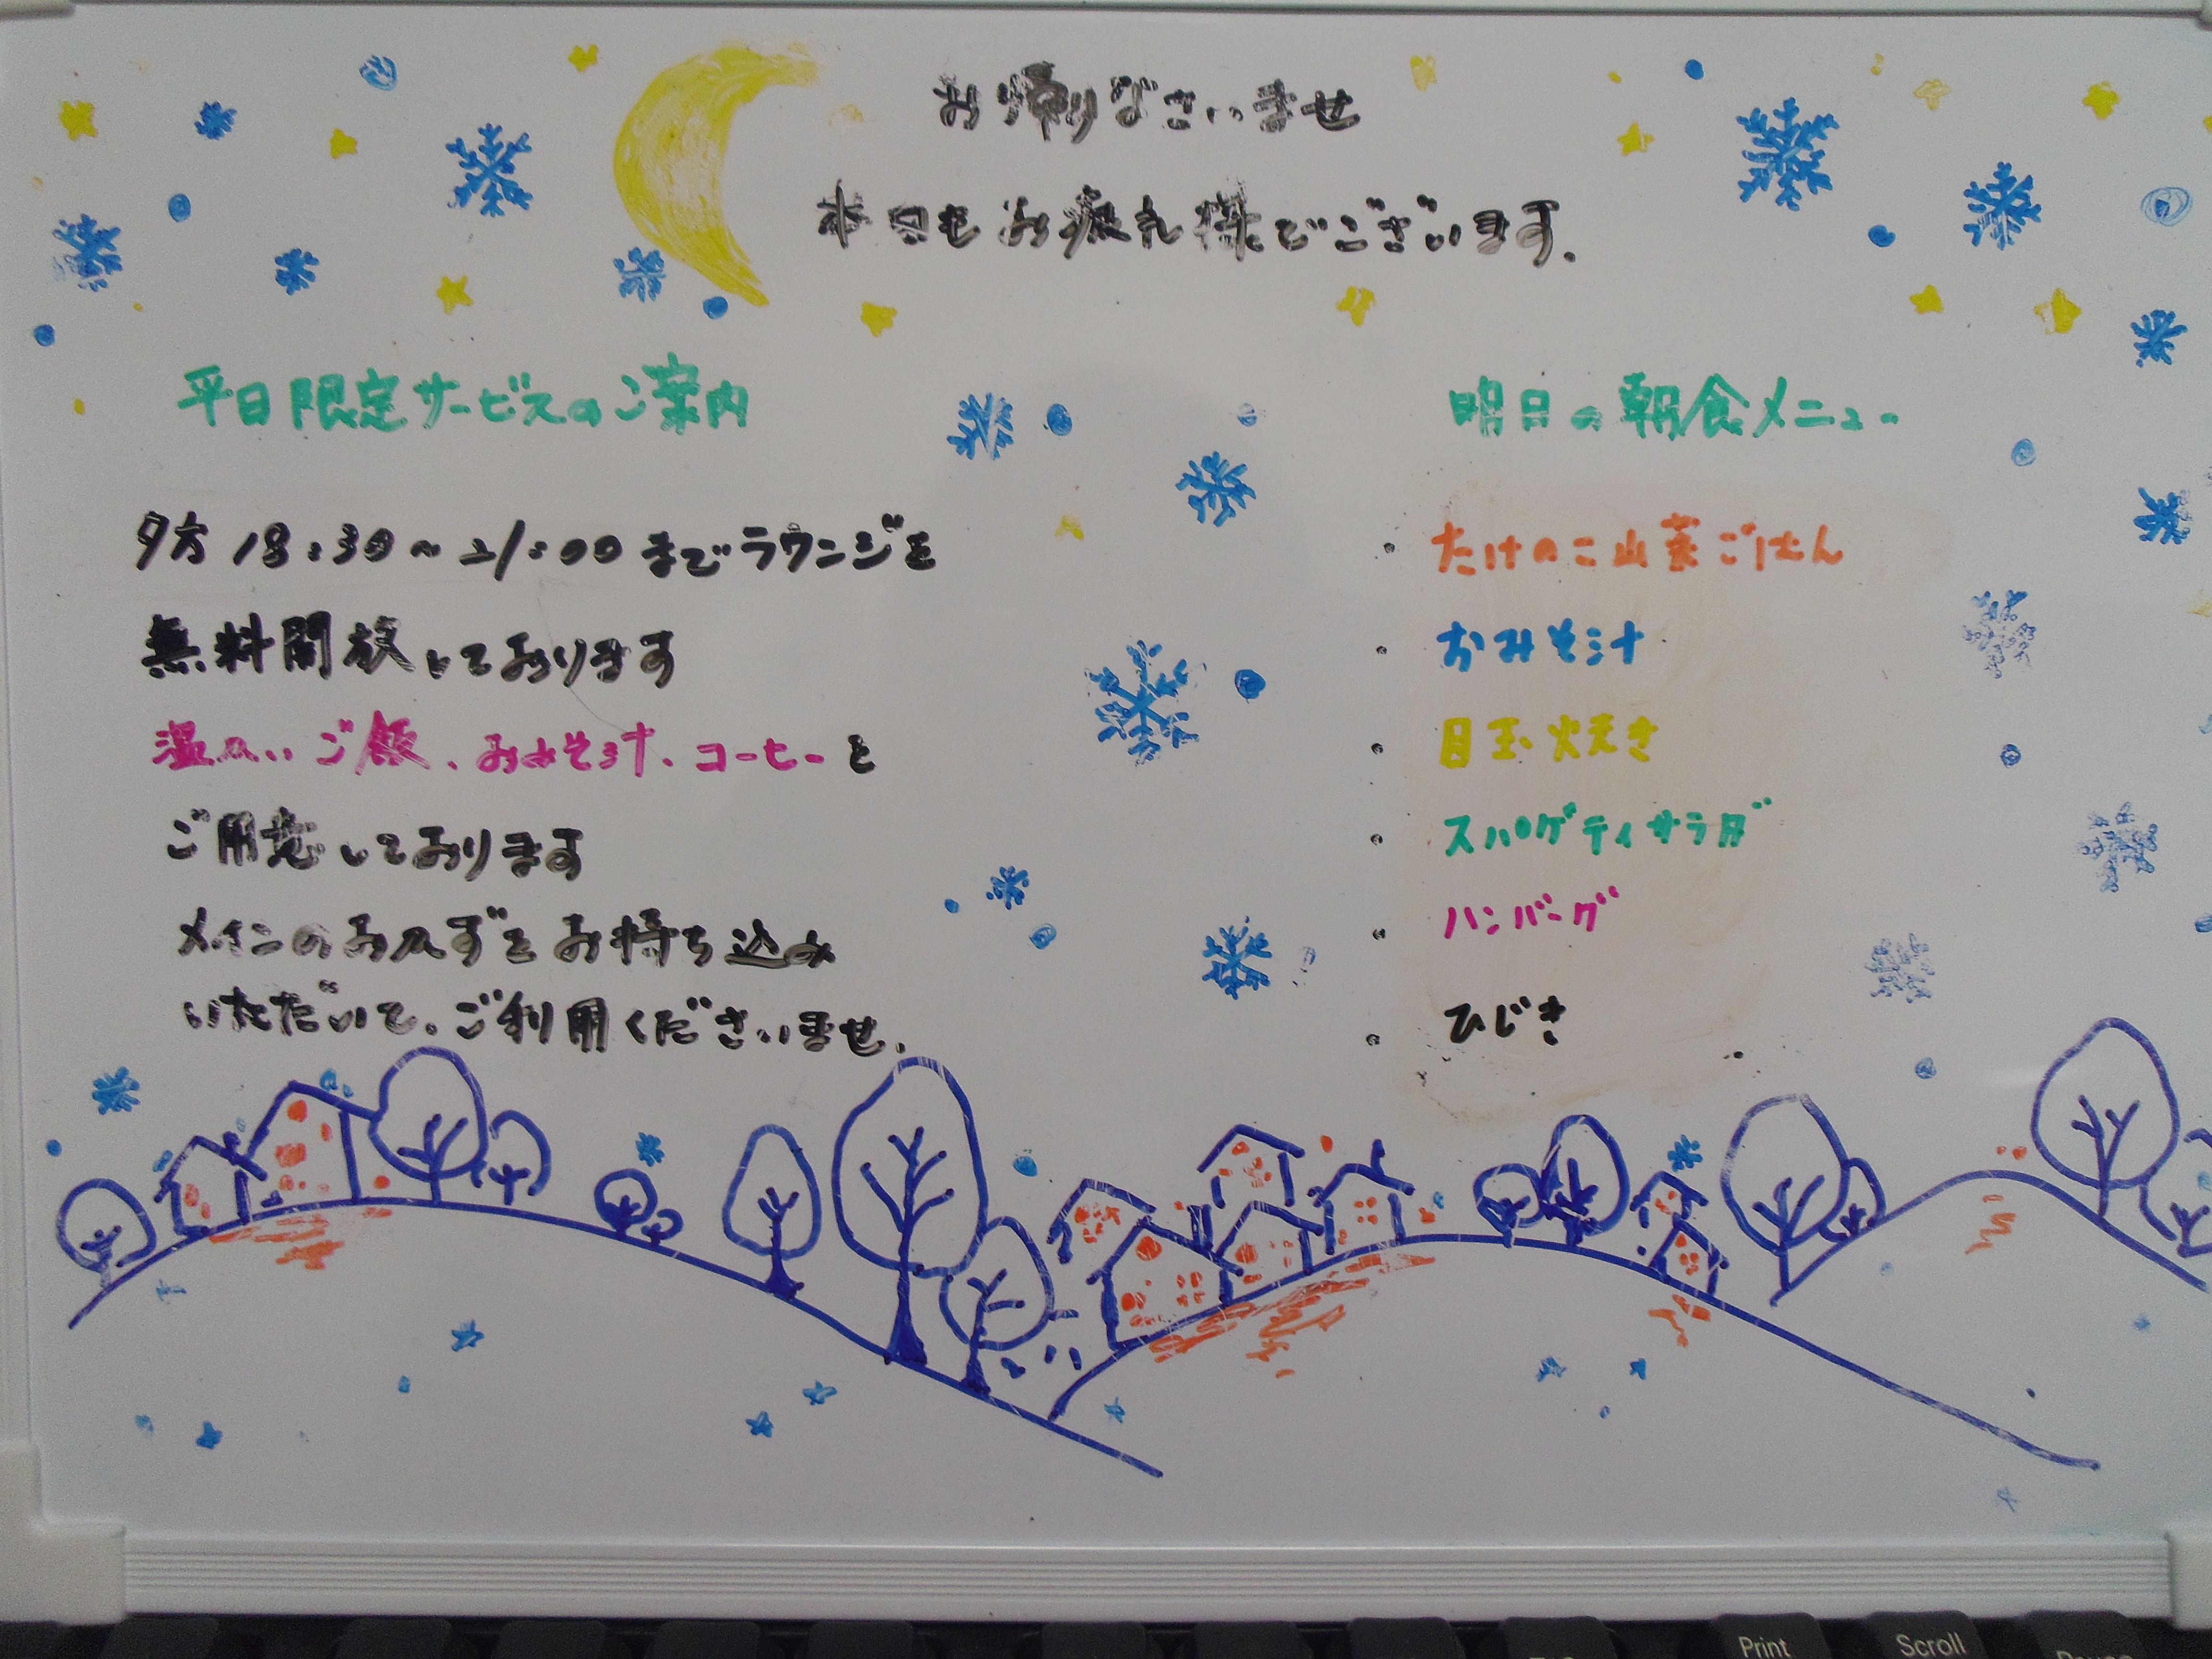 お帰りなさいませ
本日もお疲れ様でございます.
平日限定サービスのご案内
夕方 18:30~21:00までラウンジを
無料開放しております
温かいご飯、おみそ汁、コーヒーを
ご用意しております
メインのおかずをお持ち込み
いただいて。ご利用くださいませ.
明日の朝食メニュー
・たけのこ山菜ごはん
・おみそ汁
・目玉焼き
・スパゲティサラダ
・ハンバーグ
・ひじき
Print
Scroll